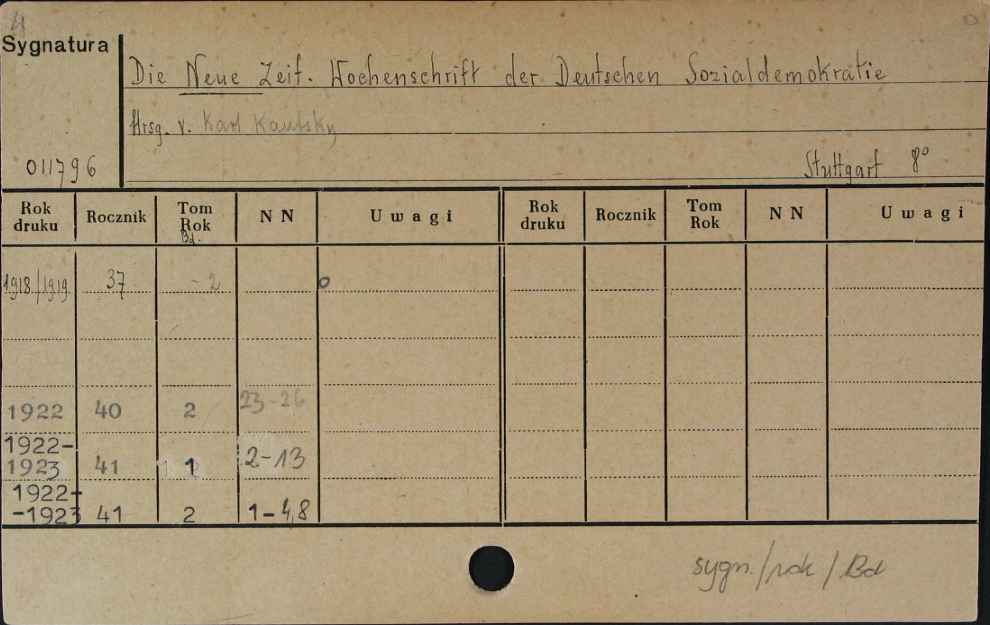 Sygnatura
Die Neue Zeit. Wochenschrift der Deutschen Sozialdemokratie
Hrsg. v. Karl Kautsky
011796
Stuttgart 8°
Rok druku Rocznik Tom Rok Bd. NN Uwagi Rok druku Rocznik Tom Rok NN Uwagi
1918/1919 37 - 2 o
1922 40 2 23-26
1922-1923 41 1 2-13
1922--1923 41 2 1-4,8
sygn./rok/Bd